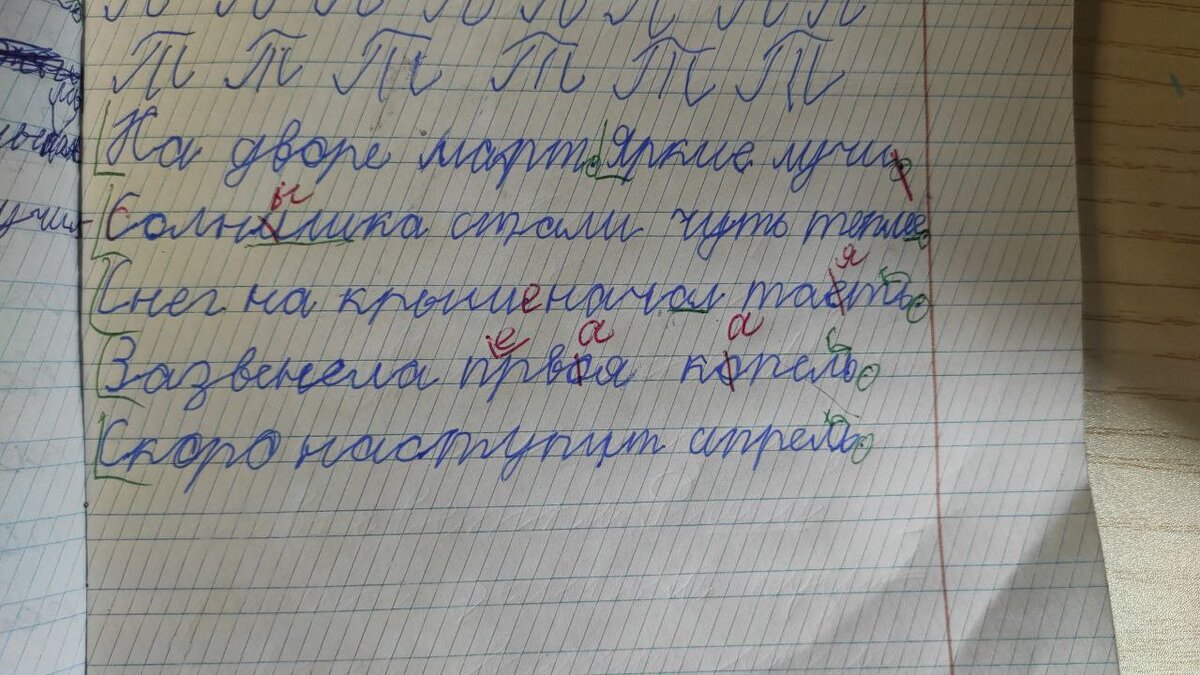 П П П П П П П П
Т Т Т Т Т Т
На дворе март. Яркие лучи
Солнышка стали чуть теплее.
Снег на крыше начал таять.
Зазвенела первая капель.
Скоро наступит апрель.